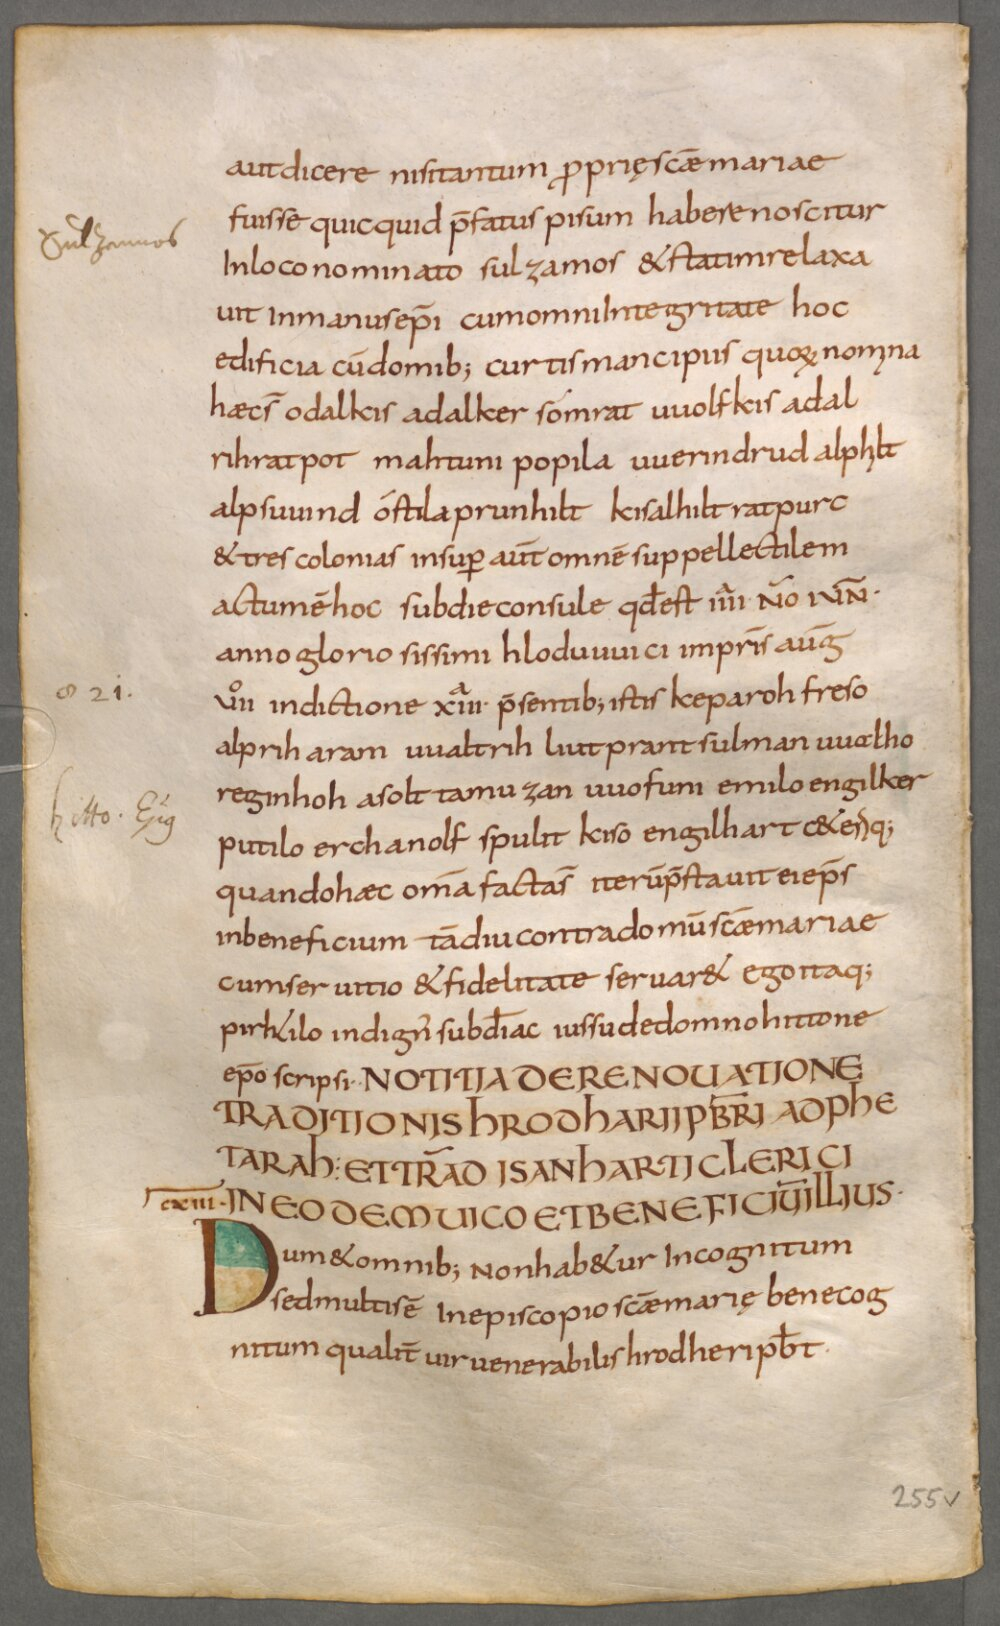 aut dicere nisi tantum ꝓprię scǣ mariae
fuissē quicquid p̄fatus pisum habere noscitur
Sulzamos
In loco nominato sulzamos & statim relaxa
uit In manus ep̄i cum omni Integritate hoc
edificia cū domib; curtis mancipiis quoꝝ nomina
haec s̄ odalkis adalker sómrat uuolfkis adal
rih ratpot mahtuni popila uuerindrud alphilt
alpsuuind óstila prunhilt kisalhilt ratpurc
& tres colonias insup̱ aut̄ omnē suppellectilem
actum ē hoc sub die consule qd̄ est iiii no iun̄.
anno gloriosissimi hloduuuici impr̄is auḡ
821.
uiii indictione xiiii p̄sentib; istis keparoh freso
alprih aram uualtrih liutprant sulman uuælho
reginhoh asolt tamuzan uuofuni emilo engilker
hitto. Ep̄s
putilo erchanolf spulit kiso engilhart c&eriq;
quando haec om̄a facta s̄ iterū p̄stauit ei ep̄s
in beneficium tādiu contra domū scǣ mariae
cum seruitio & fidelitate seruar& ego itaq;
pirhtilo indign̄ subd̄iac iussu de domno hittone
ep̄o scripsi. NOTITIA DE RENOUATIONE
TRADITIONIS HRODHARII PBR̄I AD PHE
TARAH: ET TRAD̄ ISANHARTI CLERICI
cxiii. IN EODEM UICO ET BENEFICIŪ ILLIUS.
Dum & omnib; Non hab&ur Incognitum
sed multis ē In episcopio scǣ marię bene cog
nitum qualit̄ uir uenerabilis hrodheri pb̄t.
255v